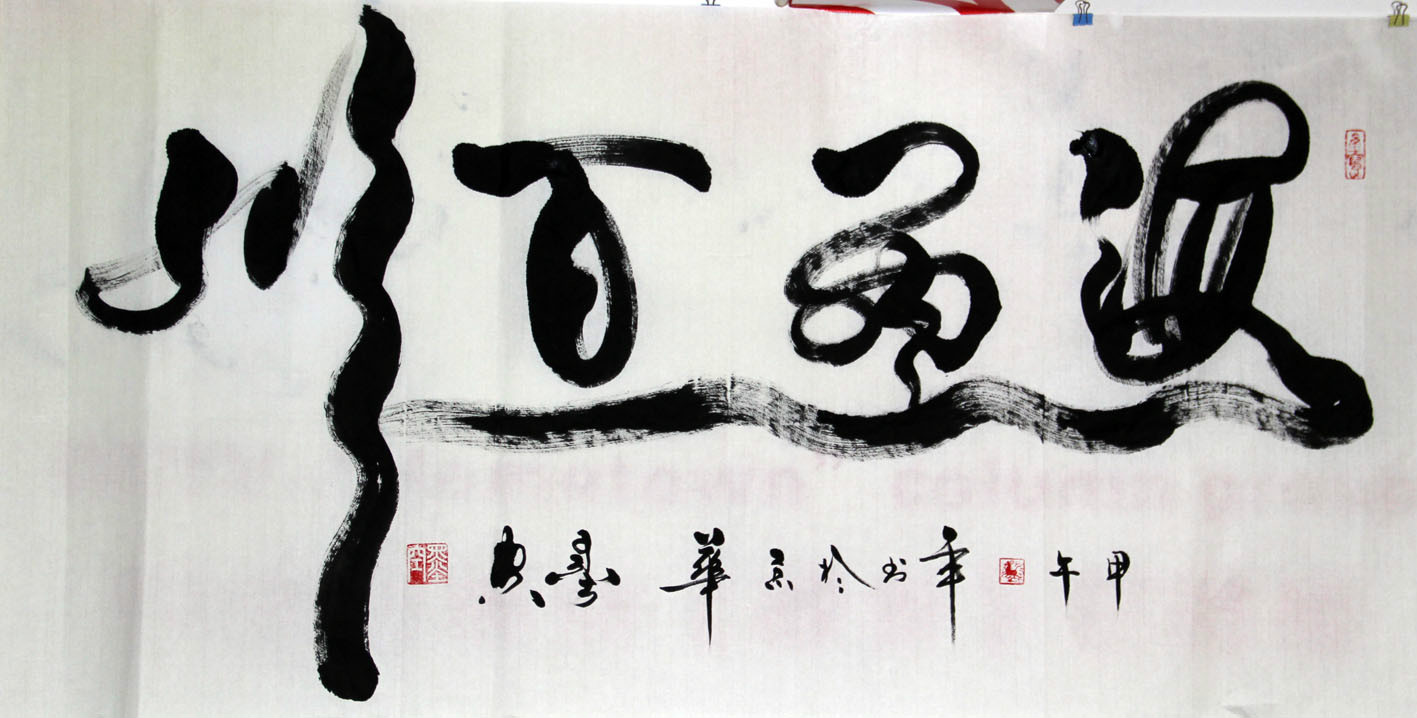 海納百川
甲午年书於京華 墨